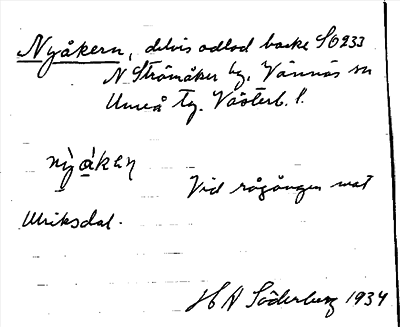 Nyåkern, delvis odlad backe SO 233
N Strömåker by, Vännäs sn
Umeå tg. Västerb. l.
nỳåkeɳ
Vid rågången mot
Ulriksdal.
H A Söderberg 1934